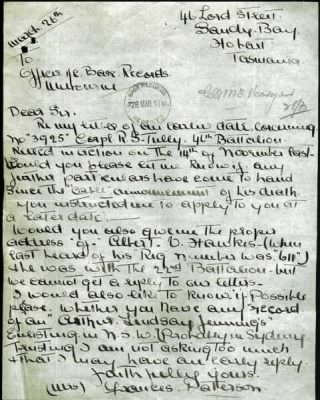 March 26th
46 Lord Street
Sandy Bay
Hobart
Tasmania
To
Officer i/c Base Records
Melbourne
28 MAR
Dear Sir.
Re my letter of an earlier date concerning
No "3925" Corpl R. S. Tully. 4th Battalion
Killed in action on the 14th of November last
Could you please let me know if any
further particulars have come to hand
since the "cable" announcement of his death
you instructed me to apply to you at
a later date.
Would you also give me the proper
address "of" Albert. V. Hawkes - (when
last heard of his Reg number was "611")
& he was with the 2nd Battalion - but
we cannot get a reply to our letters -
I would also like to know if possible
please whether you have any record
of an "Arthur Lindsay Jennings"
enlisting in N.S.W. (Probably in Sydney
Trusting I am not asking too much
& that I may have an early reply.
Faithfully yours.
(Mrs) Frances. Patterson